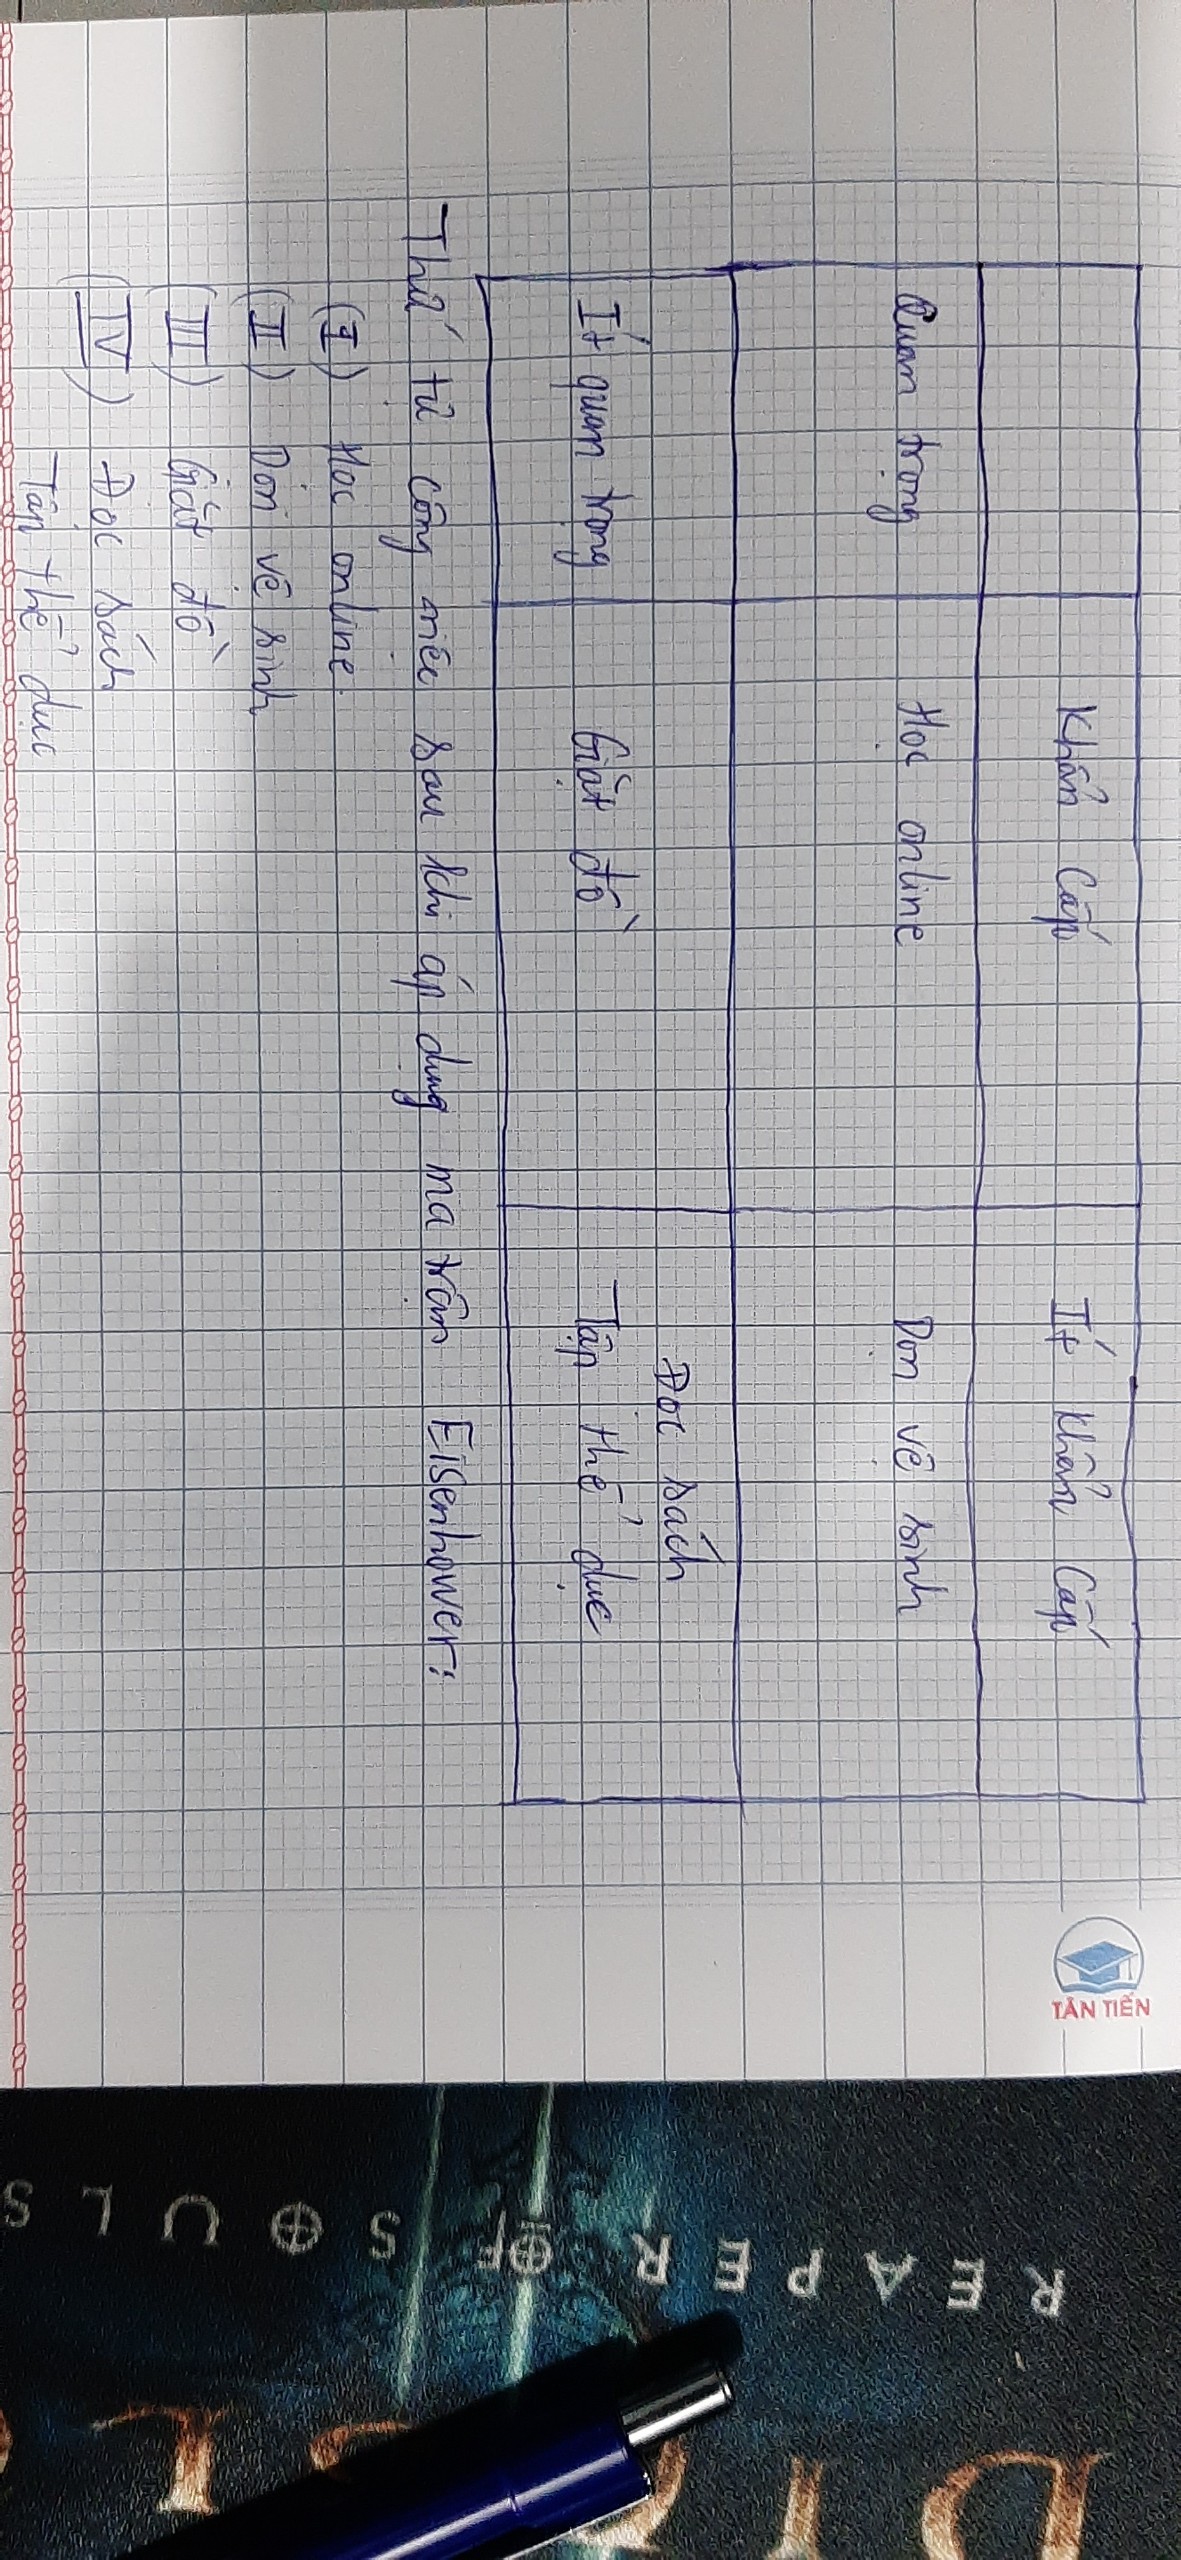 Khẩn Cấp Ít Khẩn Cấp
TÂN TIẾN
Quan trọng Học online Dọn vệ sinh
Đọc sách
Ít quan trọng Giặt đồ Tập thể dục
Thứ tự công việc sau khi áp dụng ma trận Eisenhower:
(I) Học online
(II) Dọn vệ sinh
(III) Giặt đồ
(IV) Đọc sách
Tập thể dục
REAPER OF SOULS